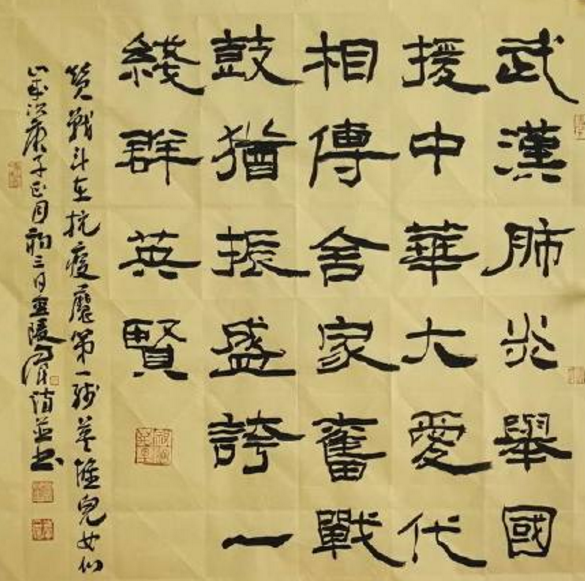 武漢肺炎舉國
援中華大愛代
相傳舍家奮戰
鼓猶振盛誇一
綫群英賢
贊戰斗在抗疫魔第一綫英雄兒女们
歲次庚子正月初三日金陵 并书